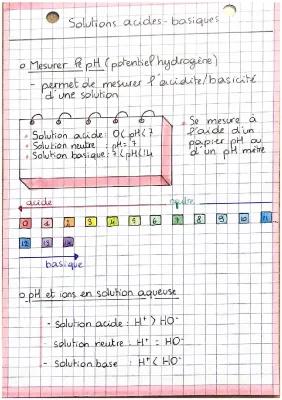 Solutions acides-basiques
o Mesurer le pH (potentiel hydrogène)
- permet de mesurer l'acidité/basicité
d'une solution
• Solution acide : 0<pH<7
• Solution neutre : pH = 7
• Solution basique : 7<pH<14
• Se mesure à
l'aide d'un
papier pH ou
d'un pH mètre
acide neutre
0 1 2 3 4 5 6 7 8 9 10 11
12 13 14
basique
o pH et ions en solution aqueuse
- Solution acide : H⁺ > HO⁻
- Solution neutre : H⁺ = HO⁻
- Solution base : H⁺ < HO⁻